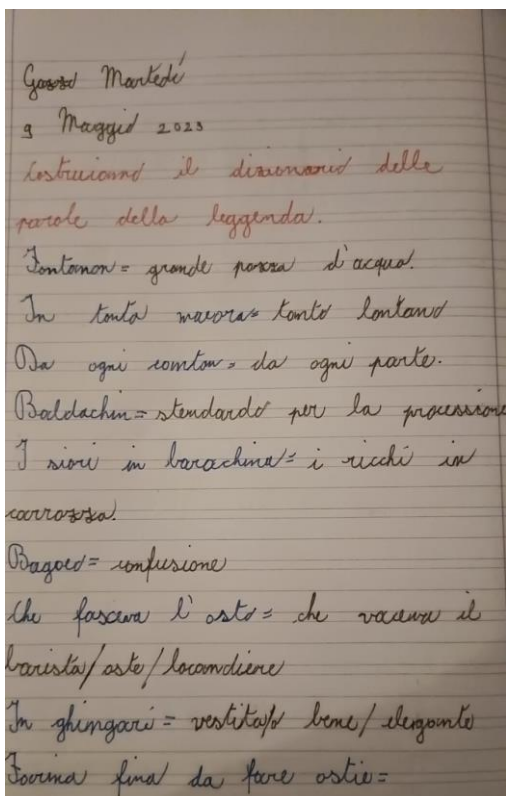 Martedí
9 Maggio 2023
Costruiamo il dizionario delle
parole della leggenda.
Fontanon = grande pozza d'acqua.
In tonta = tanto lontano
Da ogni canton = da ogni parte.
Baldachin = stendardo per la processione
I siori in barachina = i ricchi in
carrozza.
Bagoeo = confusione
Che fasceva l'osto = che il
barista/oste/locandiere
In ghingari = vestita/o bene/elegante
Farina fina da fare ostie =